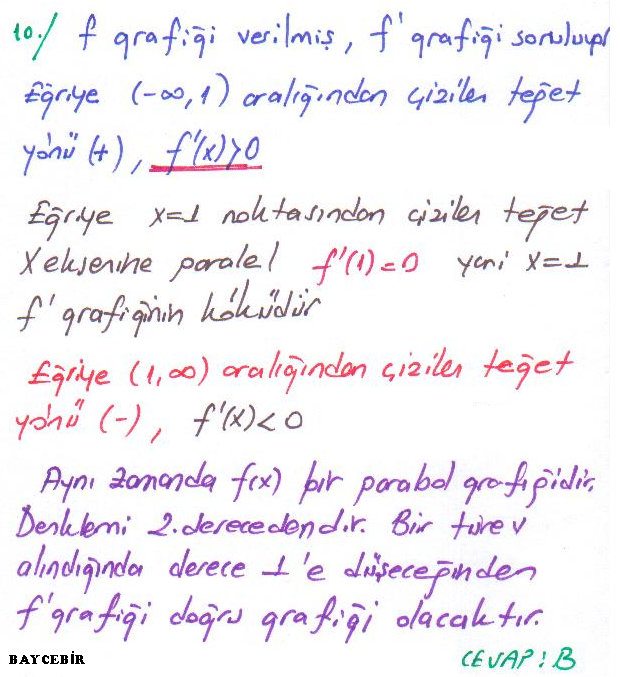 10./ f grafiği verilmiş, f' grafiği soruluyor
Eğriye (-∞,1) aralığından çizilen teğet
yönü (+), f'(x)>0
Eğriye x=1 noktasından çizilen teğet
X eksenine paralel f'(1)=0 yani x=1
f' grafiğinin köküdür
Eğriye (1,∞) aralığından çizilen teğet
yönü (-), f'(x)<0
Aynı zamanda f(x) bir parabol grafiğidir.
Denklemi 2.derecedendir. Bir türev
alındığında derece 1'e düşeceğinden
f' grafiği doğru grafiği olacaktır.
CEVAP: B
BAYCEBİR